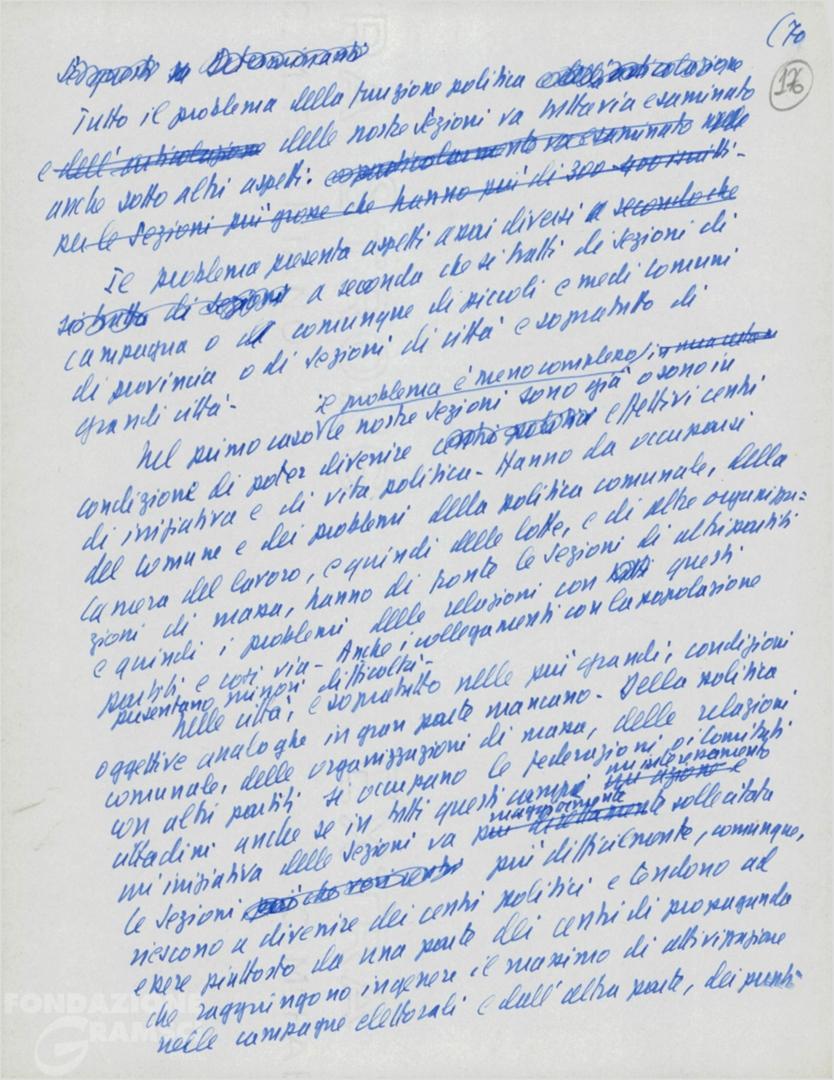 (70
176
Tutto il problema della funzione politica
e dell'articolazione delle nostre sezioni va tuttavia esaminato
anche sotto altri aspetti:
per le sezioni più grosse che hanno più di 300-400 iscritti-
Il problema presenta aspetti assai diversi a secondo che
si tratta di sezioni a seconda che si tratti di sezioni di
campagna o comunque di piccoli e medi comuni
di provincia o di sezioni di città e sopratutto di
grandi città-
il problema è meno complesso/in
Nel primo caso le nostre sezioni sono già o sono in
condizione di poter divenire centri politici effettivi centri
di iniziativa e di vita politica- Hanno da occuparsi
del comune e dei problemi della politica comunale, della
Camera del lavoro, e quindi delle lotte, e di altre organizza=
zioni di massa, hanno di fronte le sezioni di altri partiti
e quindi i problemi delle relazioni con questi
partiti e così via- Anche i collegamenti con la popolazione
presentano minori difficoltà-
Nelle città, e sopratutto nelle più grandi, condizioni
oggettive analoghe in gran parte mancano- Della politica
comunale, delle organizzazioni di massa, delle relazioni
con altri partiti si occupano le federazioni, i comitati
cittadini anche se in tutti questi campi un interessamento
un azione e
maggiormente
un'iniziativa delle sezioni va più direttamente sollecitata
Le sezioni più difficilmente, comunque,
riescono a divenire dei centri politici e tendono ad
essere piuttosto da una parte dei centri di propaganda
che raggiungono in genere il massimo di attivizzazione
nelle campagne elettorali e dall'altra parte, dei punti
FONDAZIONE
GRAMSCI